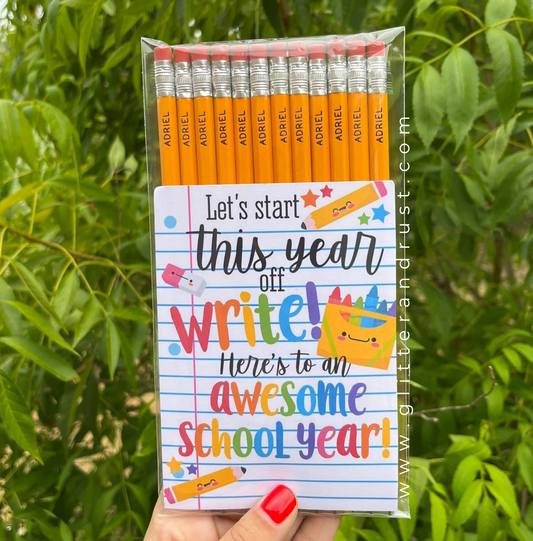 ADRIEL
ADRIEL
ADRIEL
ADRIEL
ADRIEL
ADRIEL
ADRIEL
ADRIEL
ADRIEL
ADRIEL
ADRIEL
ADRIEL
Let's start
this year
off
write!
Here's to an
awesome
school year!
www.glitterandrust.com